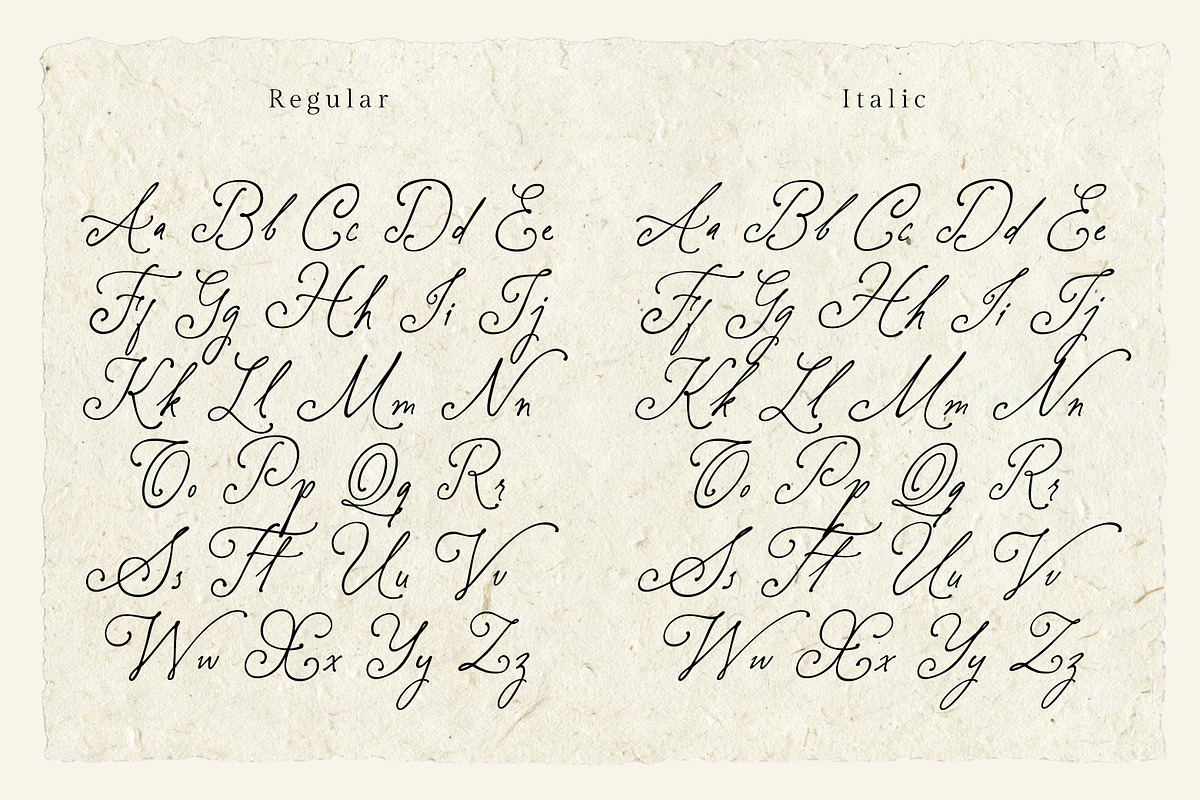 Regular
Aa Bb Cc Dd Ee
Ff Gg Hh Ii Jj
Kk Ll Mm Nn
Oo Pp Qq Rr
Ss Tt Uu Vv
Ww Xx Yy Zz
Italic
Aa Bb Cc Dd Ee
Ff Gg Hh Ii Jj
Kk Ll Mm Nn
Oo Pp Qq Rr
Ss Tt Uu Vv
Ww Xx Yy Zz